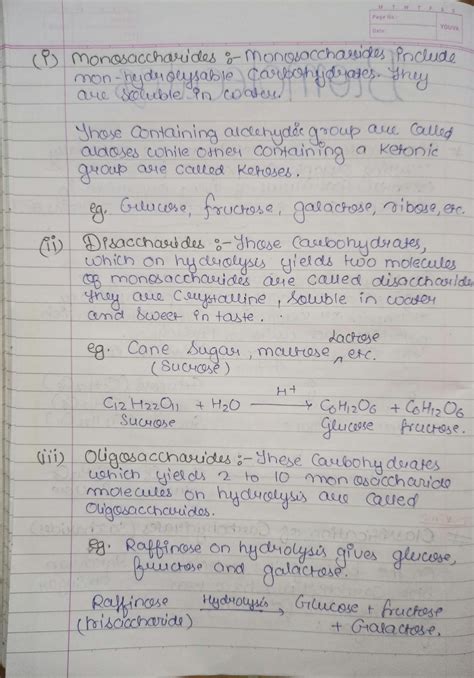 M T W T F S S
Page No.:
Date:
YOUVA
(i) Monosaccharides :- Monosaccharides include
non-hydrolysable Carbohydrates. They
are soluble in water.
Those Containing aldehydic group are Called
aldoses while other containing a Ketonic
group are called Ketoses.
eg. Glucose, fructose, galactose, ribose, etc.
(ii) Disaccharides :- Those Carbohydrates,
which on hydrolysis yields two molecules
of monosaccharides are called disaccharides
They are Crystalline, Soluble in water
and Sweet in taste.
Lactose
eg. Cane Sugar, maltose ^, etc.
(Sucrose)
C12 H22 O11 + H2O —H+→ C6H12O6 + C6H12O6
Sucrose Glucose fructose.
(iii) Oligosaccharides :- These Carbohydrates
which yields 2 to 10 monosaccharide
molecules on hydrolysis are Called
Oligosaccharides.
eg. Raffinose on hydrolysis gives glucose,
fructose and galactose.
Raffinose —Hydrolysis→ Glucose + fructose
(trisaccharide) + Galactose.